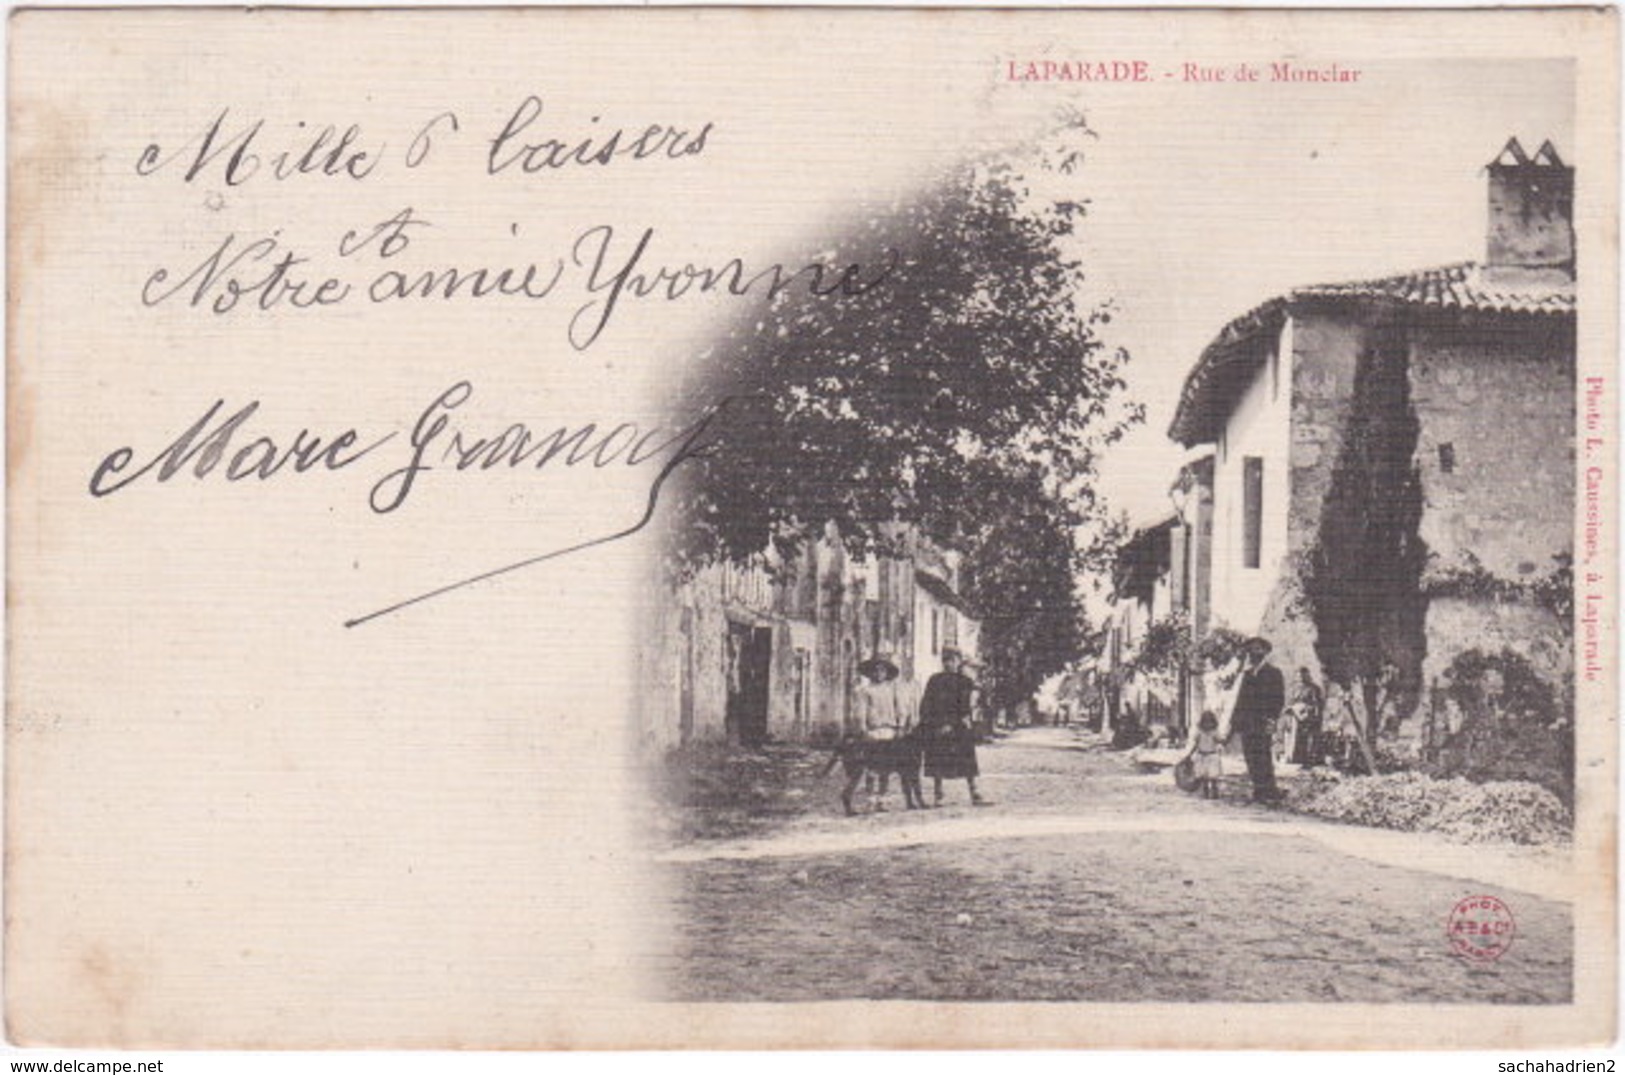 LAPARADE. - Rue de Monclar
Mille 6 baisers
A
Notre amie Yvonne
Marc
Photo L. Caussines, à Laparade
PHOT
A.B&Co
www.delcampe.net
sachahadrien2